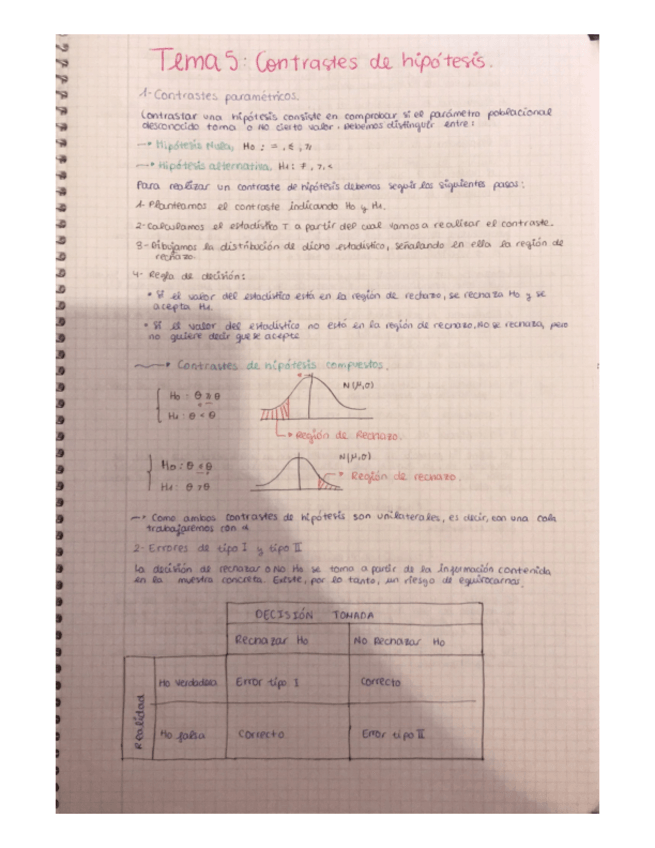 Tema 5: Contrastes de hipótesis.
1- Contrastes paramétricos.
Contrastar una hipótesis consiste en comprobar si el parámetro poblacional
desconocido toma o no cierto valor. Debemos distinguir entre:
→ Hipótesis Nula, Ho : = , ≤ , ≥
→ Hipótesis alternativa, H1: ≠ , > , <
Para realizar un contraste de hipótesis debemos seguir los siguientes pasos:
1- Planteamos el contraste indicando Ho y H1.
2- Calculamos el estadístico T a partir del cual vamos a realizar el contraste.
3- Dibujamos la distribución de dicho estadístico, señalando en ella la región de
rechazo.
4- Regla de decisión:
• Si el valor del estadístico está en la región de rechazo, se rechaza Ho y se
acepta H1.
• Si el valor del estadístico no está en la región de rechazo, No se rechaza, pero
no quiere decir que se acepte
→ Contrastes de hipótesis compuestos.
Ho : θ ≥ θ
N(μ,σ)
H1 : θ < θ
→ Región de Rechazo.
Ho : θ ≤ θ
N(μ,σ)
→ Región de rechazo.
H1 : θ > θ
→ Como ambos contrastes de hipótesis son unilaterales, es decir, con una cola
trabajaremos con α
2- Errores de tipo I y tipo II
La decisión de rechazar o No Ho se toma a partir de la información contenida
en la muestra concreta. Existe, por lo tanto, un riesgo de equivocarnos.
DECISIÓN TOMADA
Rechazar Ho No Rechazar Ho
Realidad
Ho verdadera Error tipo I Correcto
Ho falsa Correcto Error tipo II